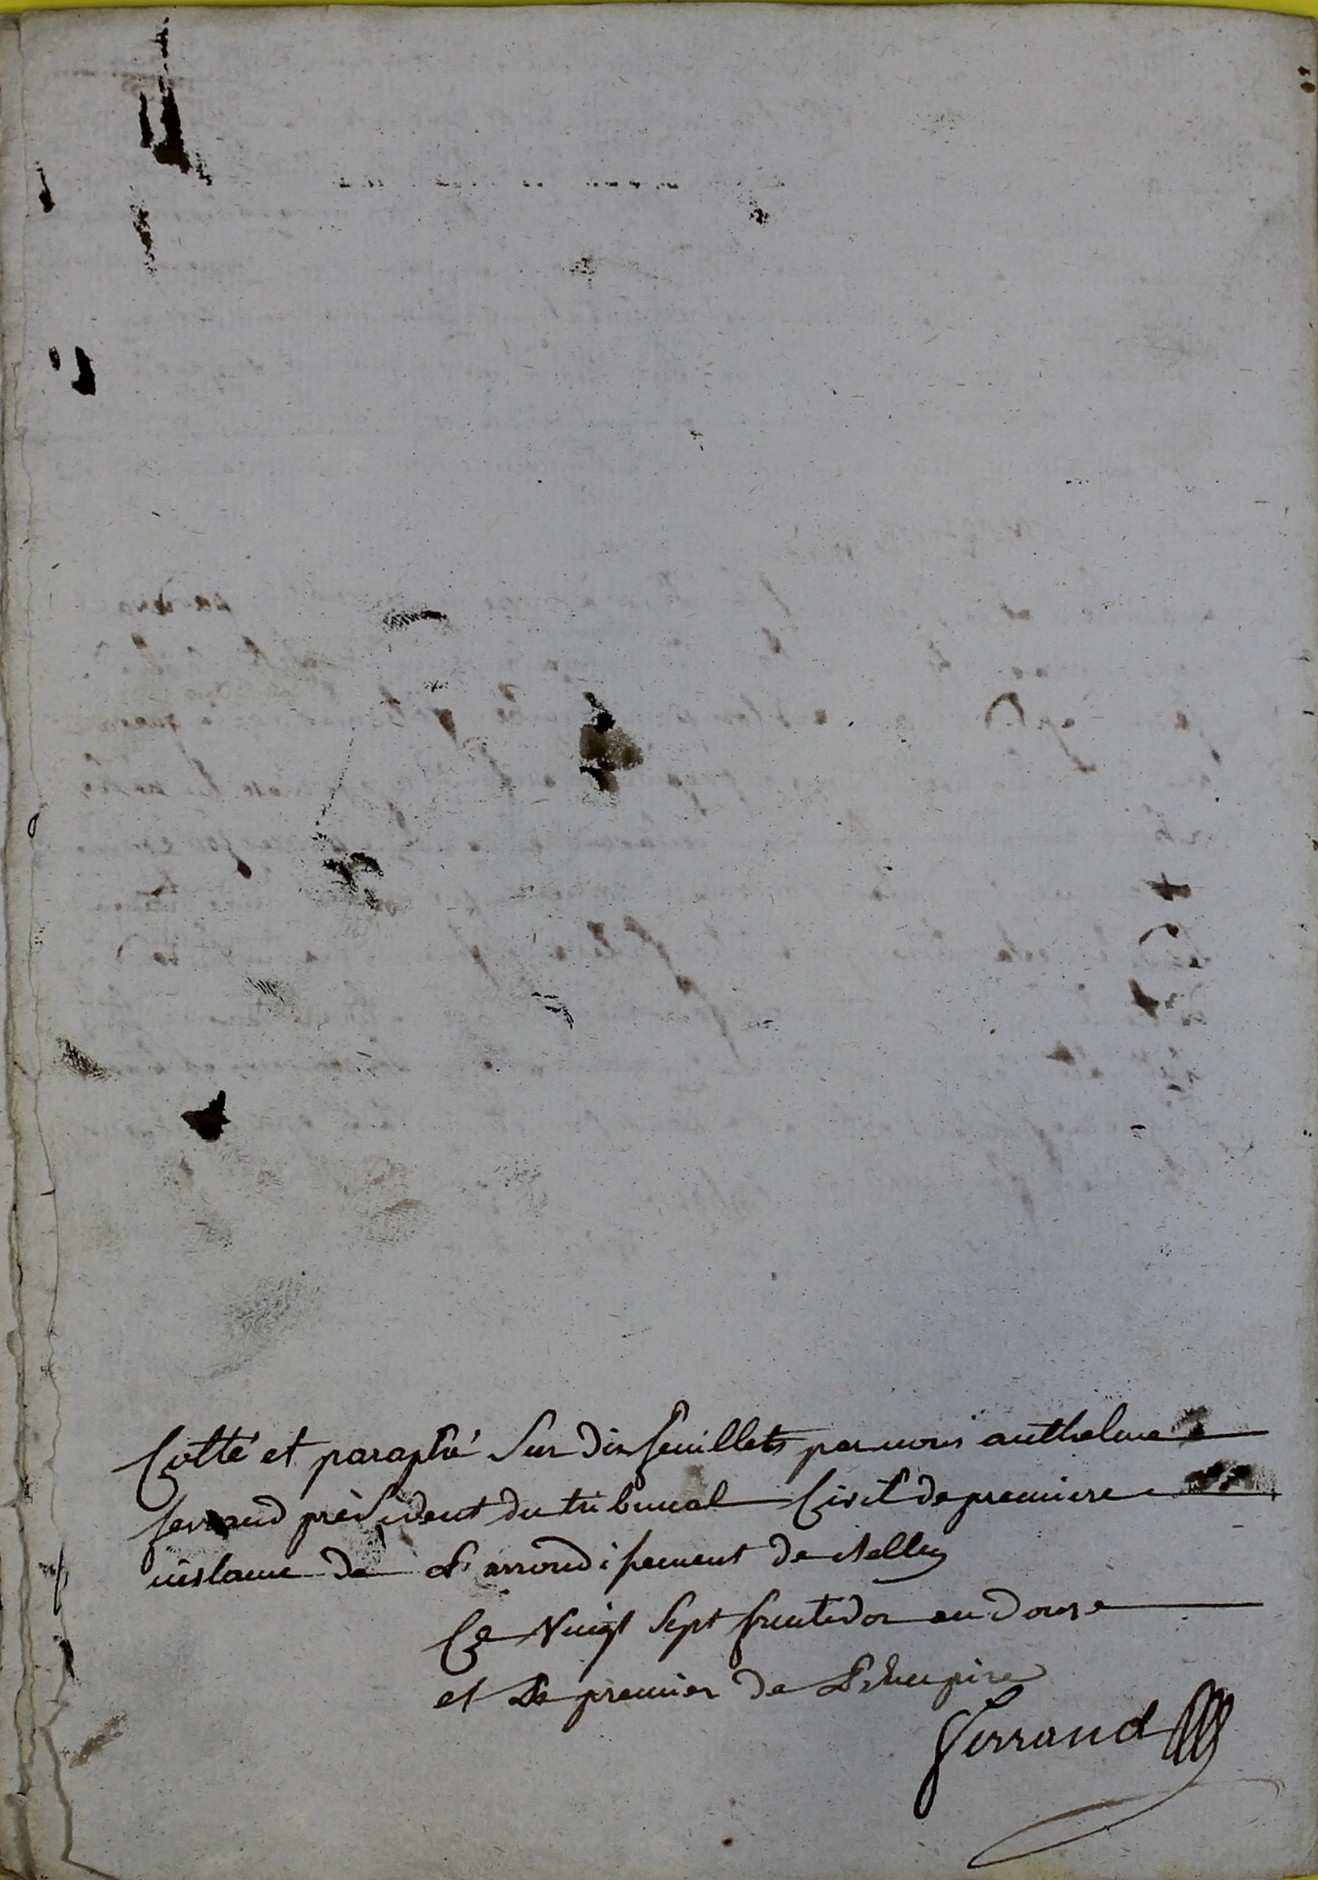 Cotté et paraphé Sur dix feuillets par nous anthelme
ferrand président du tribunal Civil de premiere
instance de L'arrondissement de Belley
Ce Vingt Sept fructidor an Douze
et Le premier de L'Empire
ferrand